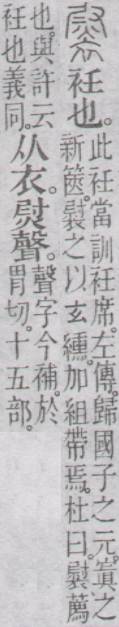 褽衽也。此衽當訓衽席。左傳。歸國子之元。寘之
新篋。褽之以玄纁。加組帶焉。杜曰。褽薦
也。與許云
衽也義同。从衣。熨聲。聲字今補。於
胃切。十五部。